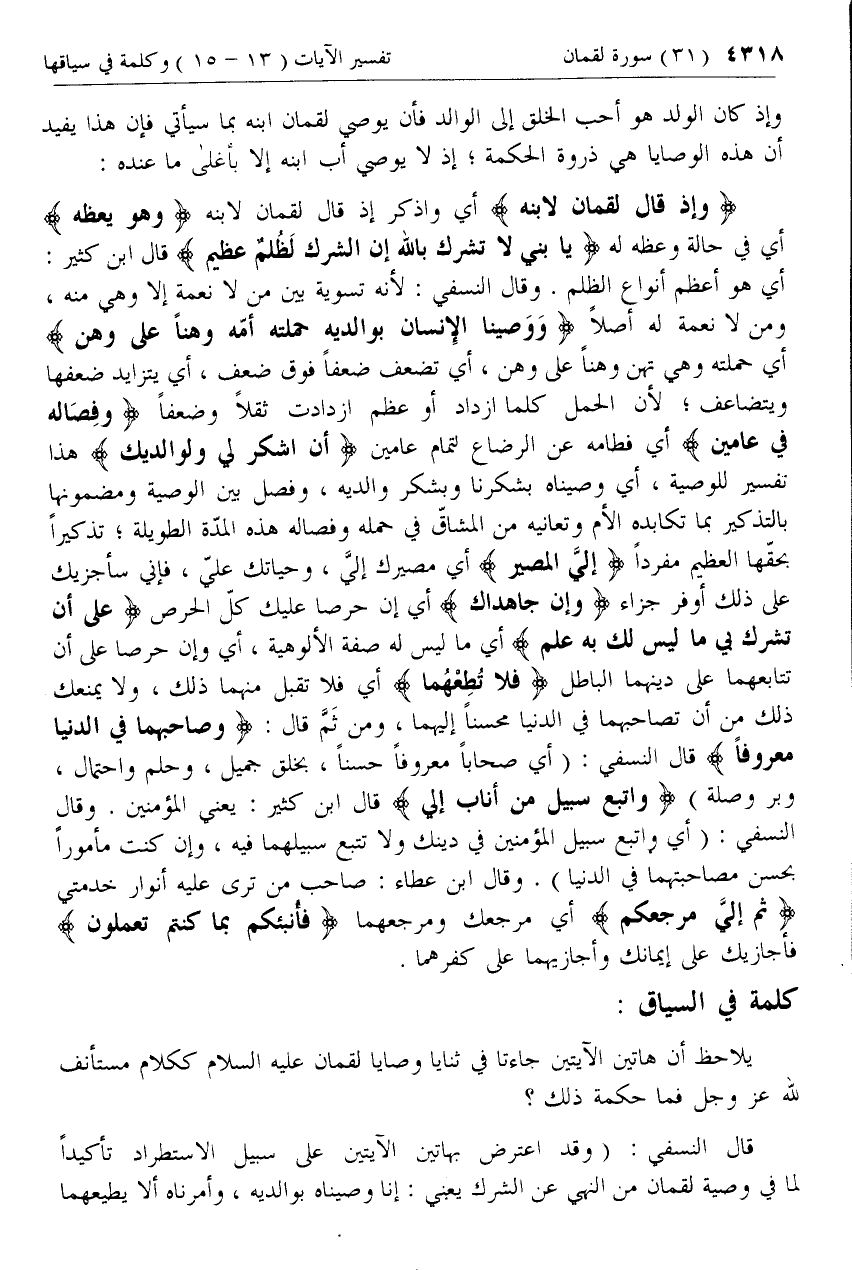 ٤٣١٨ (٣١) سورة لقمان تفسير الآيات ( ١٣ - ١٥ ) وكلمة في سياقها
وإذ كان الولد هو أحب الخلق إلى الوالد فأن يوصي لقمان ابنه بما سيأتي فإن هذا يفيد
أن هذه الوصايا هي ذروة الحكمة ؛ إذ لا يوصي أب ابنه إلا بأغلىٰ ما عنده :
﴿ وإذ قال لقمان لابنه ﴾ أي واذكر إذ قال لقمان لابنه ﴿ وهو يعظه ﴾
أي في حالة وعظه له ﴿ يا بني لا تشرك بالله إن الشرك لَظُلمٌ عظيم ﴾ قال ابن كثير :
أي هو أعظم أنواع الظلم . وقال النسفي : لأنه تسوية بين من لا نعمة إلا وهي منه ،
ومن لا نعمة له أصلاً ﴿ وَوَصينا الإنسان بوالديه حملته أمّه وهناً على وهن ﴾
أي حملته وهي تهن وهناً على وهن ، أي تضعف ضعفاً فوق ضعف ، أي يتزايد ضعفها
ويتضاعف ؛ لأن الحمل كلما ازداد أو عظم ازدادت ثقلاً وضعفاً ﴿ وفِصَاله
في عامين ﴾ أي فطامه عن الرضاع لتمام عامين ﴿ أن اشكر لي ولوالديك ﴾ هذا
تفسير للوصية ، أي وصيناه بشكرنا وبشكر والديه ، وفصل بين الوصية ومضمونها
بالتذكير بما تكابده الأم وتعانيه من المشاقّ في حمله وفصاله هذه المدّة الطويلة ؛ تذكيراً
بحقّها العظيم مفرداً ﴿ إليَّ المصير ﴾ أي مصيرك إليَّ ، وحياتك عليّ ، فإني سأجزيك
على ذلك أوفر جزاء ﴿ وإن جاهداك ﴾ أي إن حرصا عليك كلّ الحرص ﴿ على أن
تشرك بي ما ليس لك به علم ﴾ أي ما ليس له صفة الألوهية ، أي وإن حرصا على أن
تتابعهما على دينهما الباطل ﴿ فلا تُطِعْهُما ﴾ أي فلا تقبل منهما ذلك ، ولا يمنعك
ذلك من أن تصاحبهما في الدنيا محسناً إليهما ، ومن ثَمَّ قال : ﴿ وصاحبهما في الدنيا
معروفاً ﴾ قال النسفي : ( أي صحاباً معروفاً حسناً ، بخلق جميل ، وحلم واحتمال ،
وبر وصلة ) ﴿ واتبع سبيل من أناب إلي ﴾ قال ابن كثير : يعني المؤمنين . وقال
النسفي : ( أي واتبع سبيل المؤمنين في دينك ولا تتبع سبيلهما فيه ، وإن كنت مأموراً
بحسن مصاحبتهما في الدنيا ) . وقال ابن عطاء : صاحب من ترى عليه أنوار خدمتي
﴿ ثم إليَّ مرجعكم ﴾ أي مرجعك ومرجعهما ﴿ فأنبئكم بما كنتم تعملون ﴾
فأجازيك على إيمانك وأجازيهما على كفرهما .
كلمة في السياق :
يلاحظ أن هاتين الآيتين جاءتا في ثنايا وصايا لقمان عليه السلام ككلام مستأنف
لله عز وجل فما حكمة ذلك ؟
قال النسفي : ( وقد اعترض بهاتين الآيتين على سبيل الاستطراد تأكيداً
لما في وصية لقمان من النهي عن الشرك يعني : إنا وصيناه بوالديه ، وأمرناه ألا يطيعهما